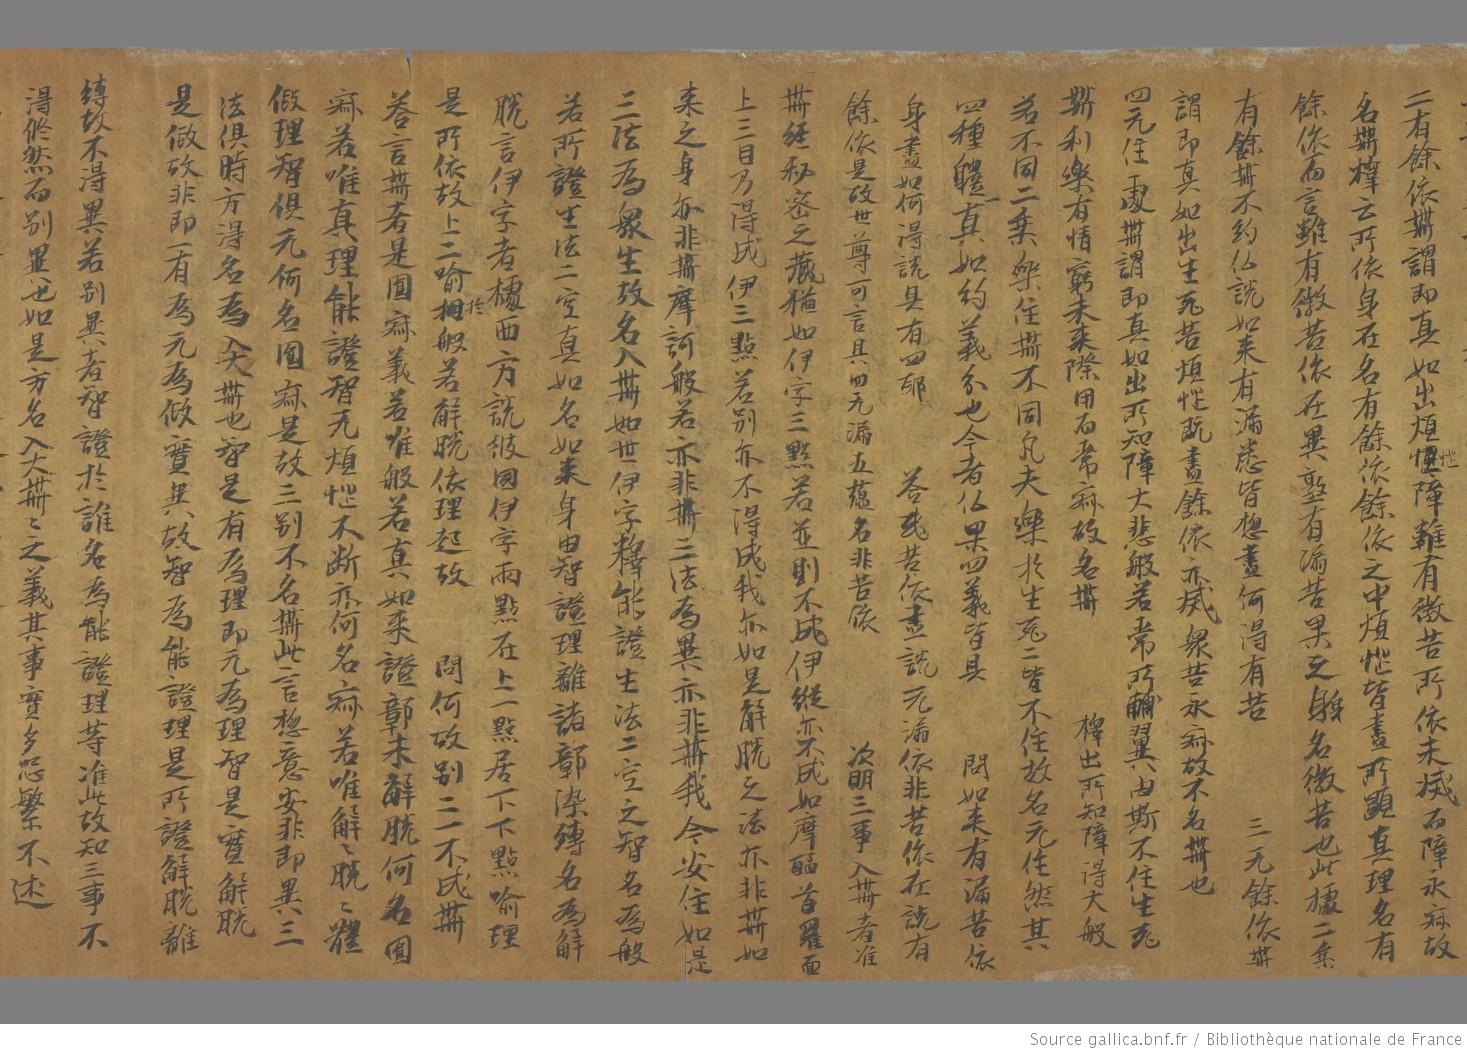 二有餘依𦬇謂即真如出煩惱障雖有微苦所依未滅而障永寂故
名𦬇釋云所依身在名有餘依餘依之中煩惱皆盡所顯真理名有
餘依而言雖有微苦依在異熟有漏苦果之身名微苦也此據二乘
有餘𦬇不約仏說如來有漏悉皆惣盡何得有苦 三无餘依𦬇
謂即真如出生死苦煩惱既盡餘依亦滅眾苦永寂故不名𦬇也
四无住處𦬇謂即真如出所知障大悲般若常所輔翼由斯不住生死
𦬇利樂有情窮未來際用而常寂故名𦬇 釋出所知障得大般
若不同二乘樂住𦬇不同凡夫樂於生死二皆不住故名无住然其
四種體真如約義分也今者仏果四義皆具 問如來有漏苦依
身盡如何得說具有四耶 答我苦依盡說无漏依非苦依在說有
餘依是故世尊可言具四无漏五蘊名非苦依 次明三事入𦬇者准
𦬇經秘密之藏猶如伊字三點若並則不成伊縱亦不成如摩醯首羅面
上三目乃得成伊三點若別亦不得成我亦如是解脫之法亦非𦬇如
來之身亦非𦬇摩訶般若亦非𦬇三法各異亦非𦬇我今安住如是
三法為眾生故名入𦬇如世伊字釋能證生法二空之智名為般
若所證生法二空真如名如來身由智證理離諸鄣染縛名為解
脫言伊字者據西方說彼國伊字兩點在上一點居下下點喻理
是所依故上二喻於般若解脫依理起故 問何故別二一不成𦬇
答言𦬇者是圓寂義若唯般若真如來證鄣未解脫何名圓
寂若唯真理能證智无煩惱不断亦何名寂若唯解々脫々體
假理智俱无何名圓寂是故三別不名𦬇此言惣意安非即異三
法俱時方得名為入大𦬇也智是有為理即无為理智是實解脫
是假故非即一有為无為假實異故智為能證理是所證解脫離
縛故不得異若別異者智證於誰名為能證理等准此故知三事不
得條然而別異也如是方名入大𦬇々之義其事實多恐繁不述